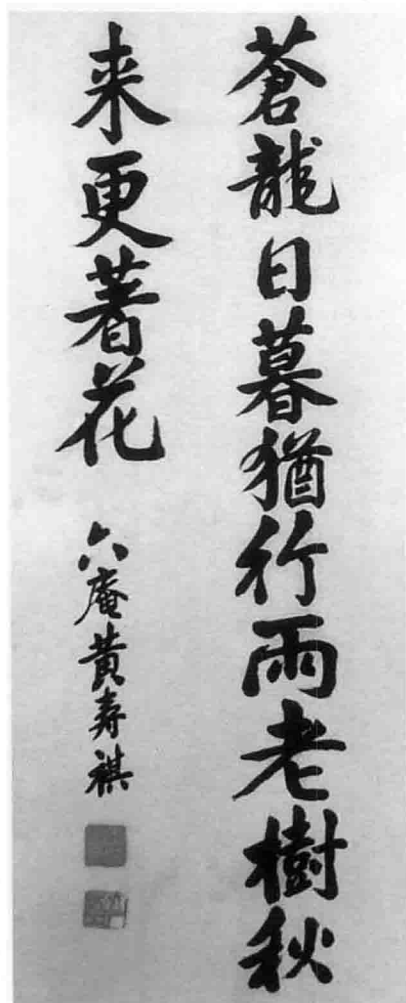 蒼龍日暮猶行雨老樹秋
来更著花
六庵黄寿祺